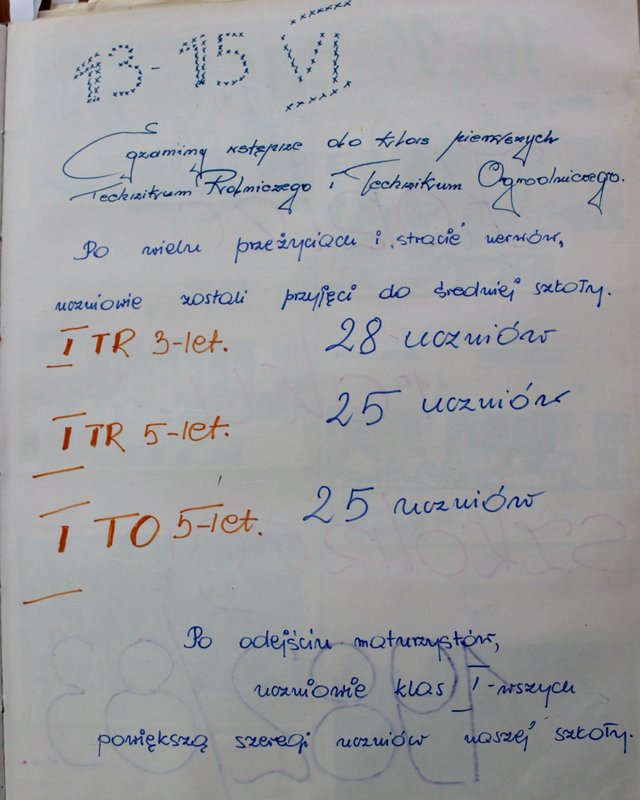 13-15 VI
Egzaminy wstępne do klas pierwszych
Technikum Rolniczego i Technikum Ogrodniczego.
Po wielu przeżyciach i stracie nerwów,
uczniowie zostali przyjęci do średniej szkoły.
I TR 3-let. 28 uczniów
I TR 5-let. 25 uczniów
I TO 5-let. 25 uczniów
Po odejściu maturzystów,
uczniowie klas I-wszych
powiększą szeregi uczniów naszej szkoły.